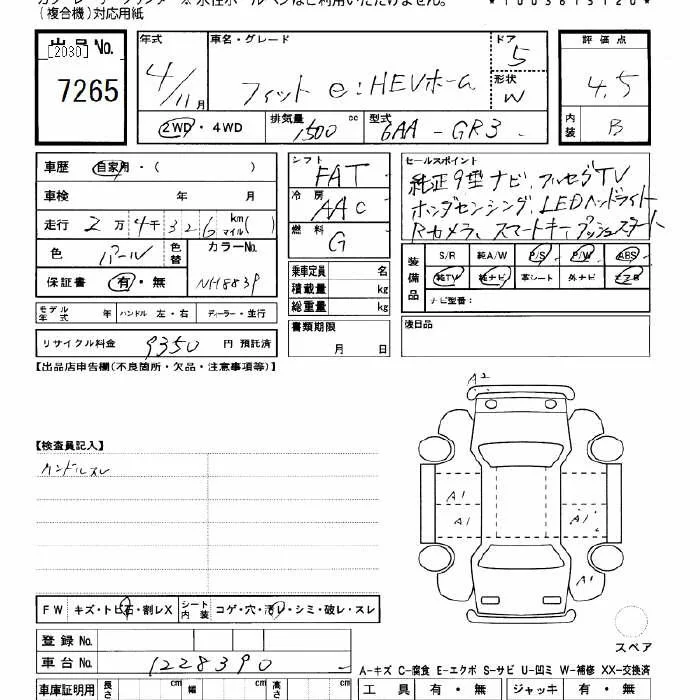 (複合機)対応用紙
*1003615120*
出品No.
[2030]
7265
年式
4/11月
車名・グレード
フィット e:HEVホーム
ドア
5
形状
W
評価点
4.5
内装
B
2WD・4WD
排気量
1500 cc
型式
6AA-GR3
車歴
自家用・( )
車検 年 月
走行 2万4千326 km(マイル)
色
パール
色替
カラーNo.
NH883P
保証書
有・無
シフト
FAT
冷房
AAC
燃料
G
セールスポイント
純正9型ナビ、フルセグTV
ホンダセンシング、LEDヘッドライト
Rカメラ、スマートキー、プッシュスタート
装備品
S/R 純A/W P/S P/W ABS
純TV 純ナビ 革シート 外ナビ エアB
ナビ型番:
乗車定員 名
積載量 kg
総重量 kg
モデル年式 年
ハンドル 左・右
ディーラー・並行
書類期限
月 日
後日品
リサイクル料金 9350 円 預託済
【出品店申告欄(不良箇所・欠品・注意事項等)】
【検査員記入】
ハンドルスレ
A2
A1
A1
A1
A1
FW キズ・トビ石・割レX
シート内装 コゲ・穴・汚レ・シミ・破レ・スレ
スペア
登録No.
車台No. 1228390
A-キズ C-腐食 E-エクボ S-サビ U-凹ミ W-補修 XX-交換済
車庫証明用 長さ cm 幅 cm 高さ cm
工具 有・無 ジャッキ 有・無